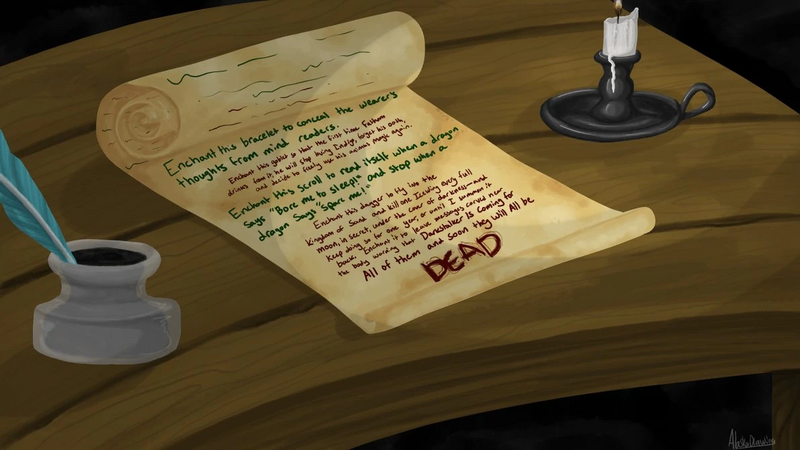 Enchant this bracelet to conceal the wearer's
thoughts from mind readers.
Enchant this goblet so that the first time Fathom
drinks from it, he will stop loving Indigo, forget his oath,
and decide to freely use his animus magic again.
Enchant this scroll to read itself when a dragon
says "Bore me to sleep!" and stop when a
dragon says "Spare me!"
Enchant this dagger to fly into the
Kingdom of Sand and kill one IceWing every full
moon, in secret, under the cover of darkness—and
keep doing so for one year, or until I summon it
back. Enchant it to leave messages carved near
the body warning that Darkstalker is coming for
All of them and soon they will All be
DEAD
AlaskaDrawing